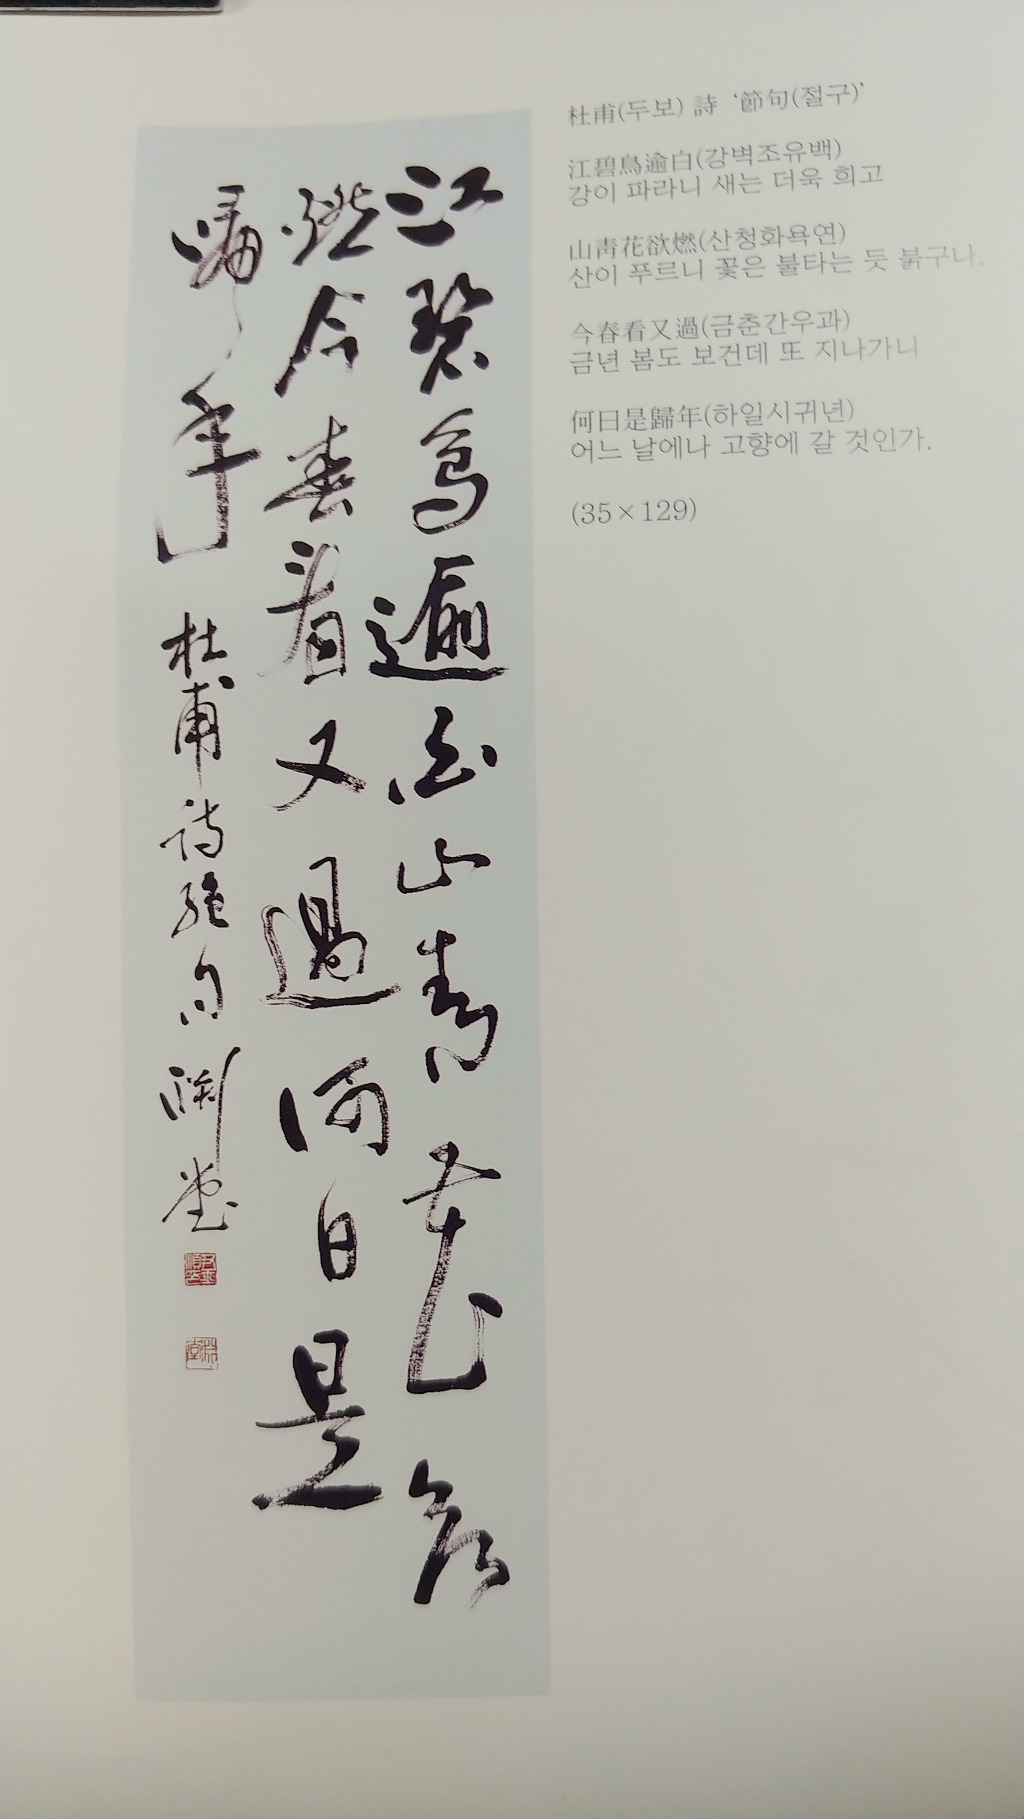 杜甫(두보) 詩 '節句(절구)'
江碧鳥逾白(강벽조유백)
강이 파라니 새는 더욱 희고
山靑花欲燃(산청화욕연)
산이 푸르니 꽃은 불타는 듯 붉구나.
今春看又過(금춘간우과)
금년 봄도 보건데 또 지나가니
何日是歸年(하일시귀년)
어느 날에나 고향에 갈 것인가.
(35×129)
江碧鳥逾白山青花欲
燃今春看又過何日是
歸年 杜甫詩絶句 渊堂